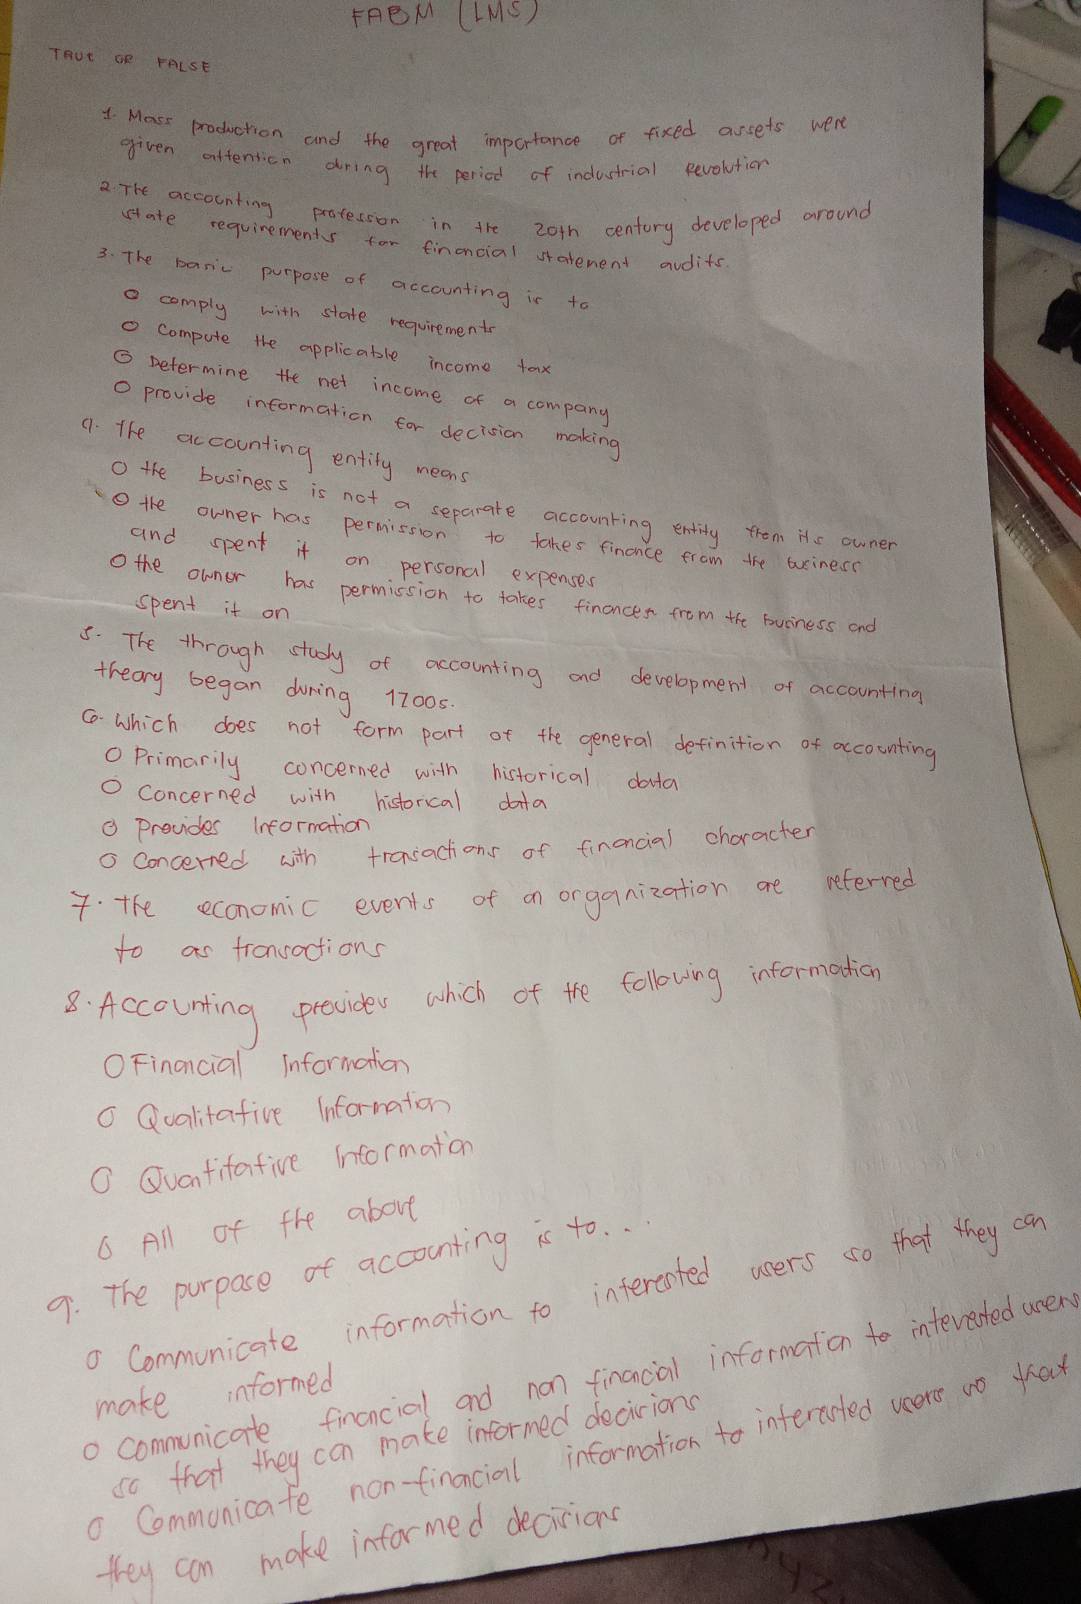 FABM (LMS)
TRUE OR FALSE
1. Mass production and the great importance of fixed assets were
given attention during the period of industrial Revolution
2. The accounting profession in the 20th century developed around
state requirements for financial statement audits.
3. The basic purpose of accounting is to
O comply with state requirements
O Compute the applicable income tax
O Determine the net income of a company
O provide information for decision making
4. The accounting entity means
O the business is not a separate accounting entity from its owner
O the owner has permission to takes finance from the business
and spent it on personal expenses
O the owner has permission to takes finances from the business and
spent it on
5. The through study of accounting and development of accounting
theary began during 1700s.
6. Which does not form part of the general definition of accounting
O Primarily concerned with historical data
O Concerned with historical data
O Provides Information
O Concerned with transactions of financial character
7. The economic events of an organization are referred
to as transactions
8. Accounting provides which of the following information
O Financial Information
O Qualitative Information
O Quantitative Information
O All of the above
9. The purpose of accounting is to...
O Communicate information to interested users so that they can
make informed
O communicate financial and non financial information to interested users
so that they can make informed decisions
O Communicate non-financial information to interested users so that
they can make informed decisions